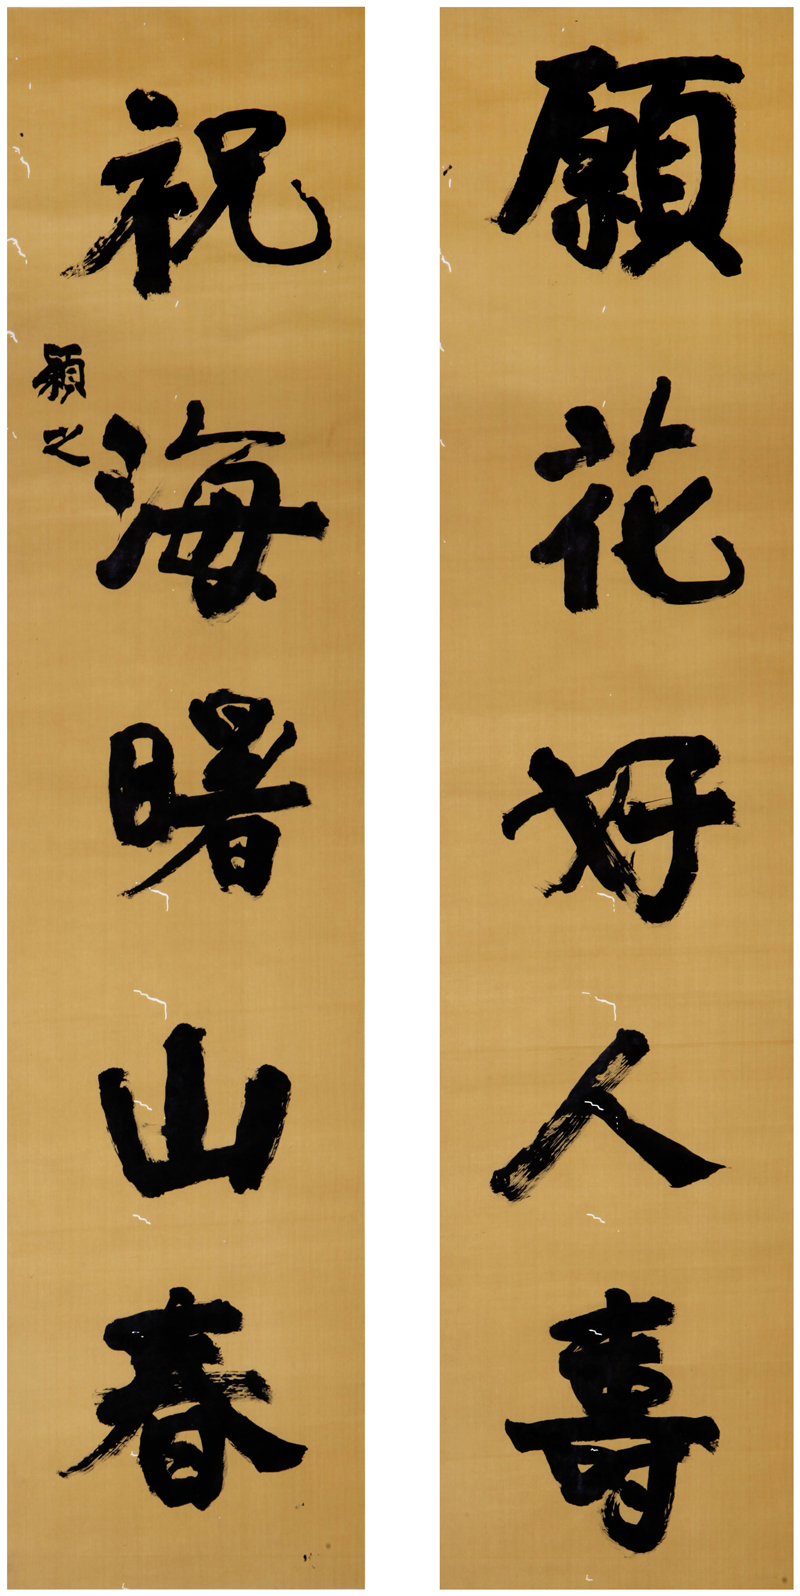 願花好人壽
祝海曙山春
願之